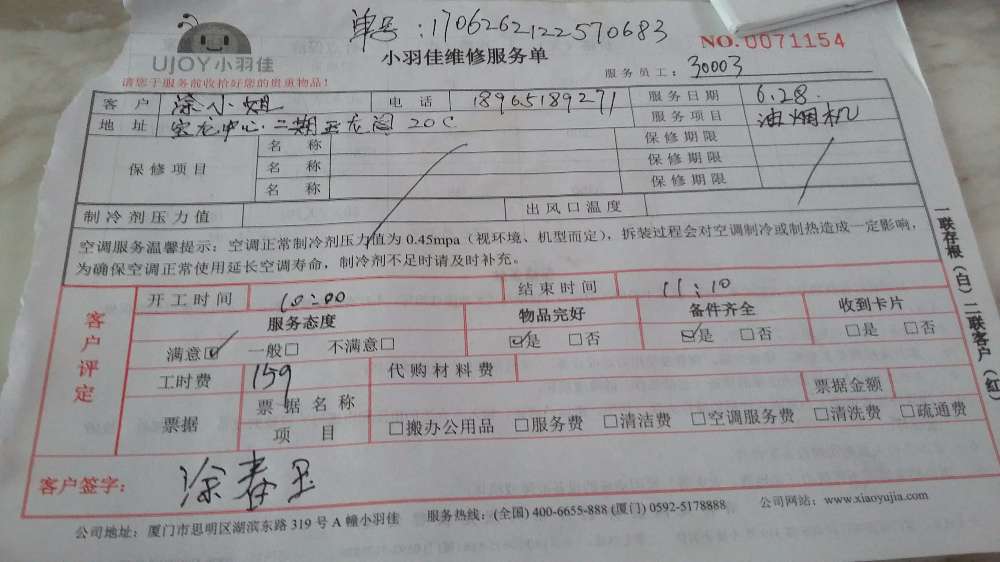 单号:1706262122570683
UJOY小羽佳
小羽佳维修服务单
NO.0071154
请您于服务前收拾好您的贵重物品!
服务员工: 30003
客户 涂小姐 电话 18965189271 服务日期 6.28.
地址 宝龙中心·二期玉龙阁 20C 服务项目 油烟机
保修项目 名称 保修期限
名称 保修期限
名称 保修期限
制冷剂压力值 出风口温度
空调服务温馨提示:空调正常制冷剂压力值为 0.45mpa(视环境、机型而定),拆装过程会对空调制冷或制热造成一定影响,
为确保空调正常使用延长空调寿命,制冷剂不足时请及时补充。
客户评定
开工时间 10:00 结束时间 11:10
服务态度 物品完好 备件齐全 收到卡片
满意☑ 一般□ 不满意□ ☑是 □否 ☑是 □否 □是 □否
工时费 159 代购材料费
票据 票据名称 票据金额
项目 □搬办公用品 □服务费 □清洁费 □空调服务费 □清洗费 □疏通费
客户签字: 涂春玉
公司地址:厦门市思明区湖滨东路 319 号 A 幢小羽佳 服务热线:(全国) 400-6655-888 (厦门) 0592-5178888 公司网站:www.xiaoyujia.com
一联存根(白)二联客户(红)